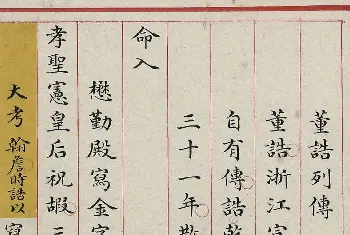 董誥列傳
董誥浙江富
自有傳誥乾
三十一年
命入
懋勤殿寫金字
孝聖憲皇后祝嘏三
大考翰詹時誥以